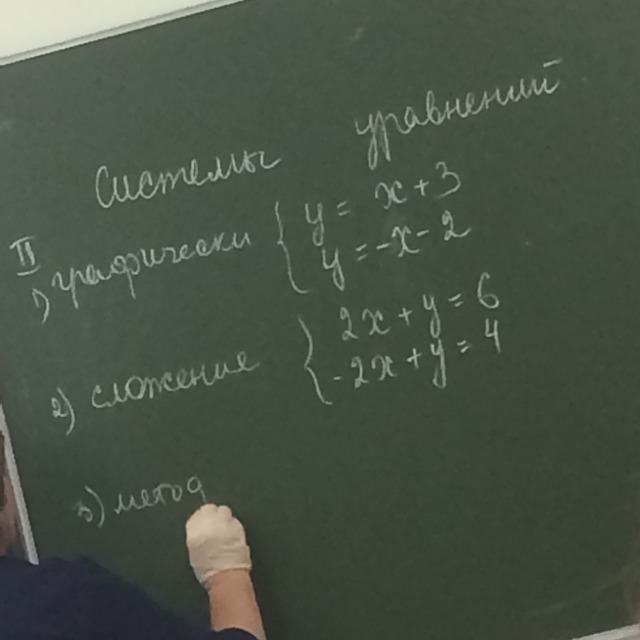 Системы уравнений
II
1) графически { y = x + 3
y = -x - 2
2) сложение { 2x + y = 6
-2x + y = 4
3) метод